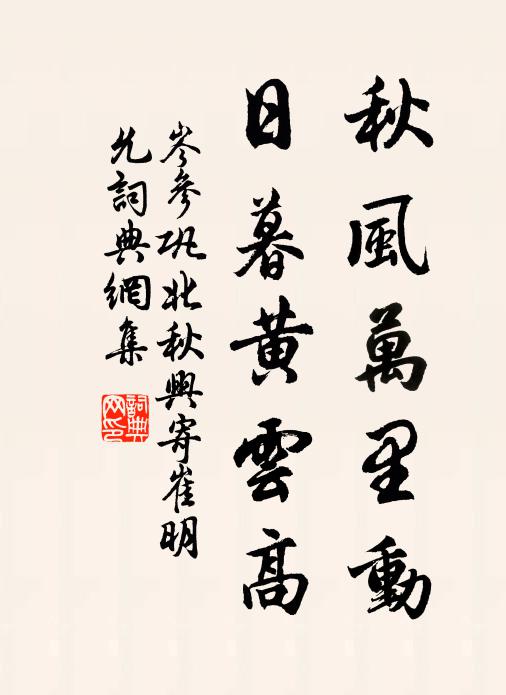 秋風萬里動
日暮黃雲高
岑參巩北秋興寄崔明
允詞典網集
詞典網印